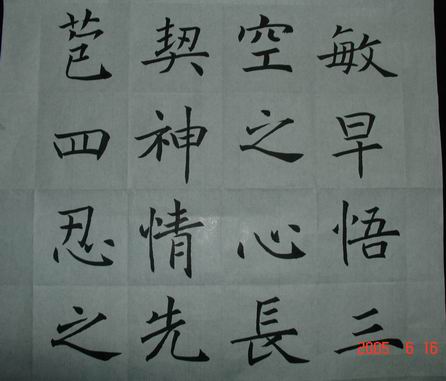 敏早悟三
空之心長
契神情先
苞四忍之
2005 6 16